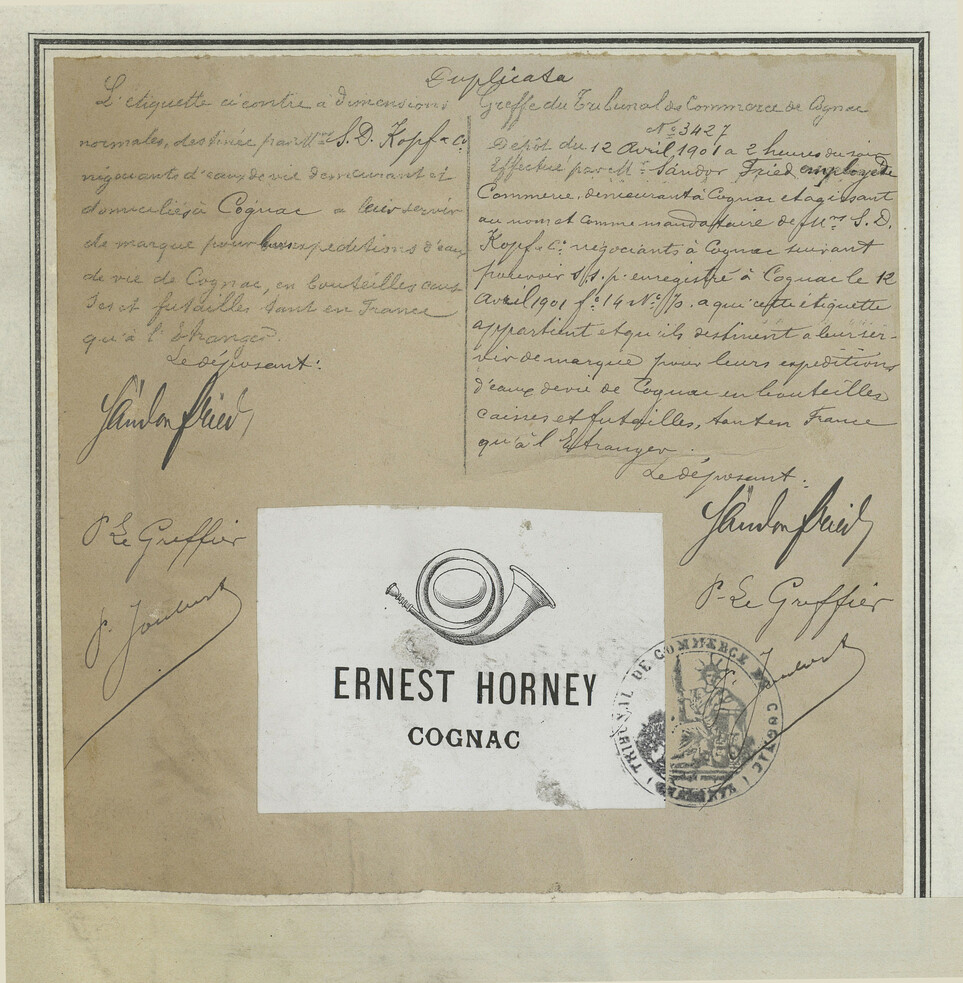 Duplicata
L'étiquette ci contre à dimensions
normales, destinée par MM.rs S. D. Kopf & Co.
négociants d'eaux de vie demeurant et
domiciliés à Cognac a leur servir
de marque pour leurs expéditions d'eaux
de vie de Cognac, en bouteilles cais
ses et futailles tant en France
qu'à l'Etranger.
Le déposant:
Sándor Fried
P. Le Greffier
Greffe du Tribunal de Commerce de Cognac
No. 3427
Dépôt du 12 Avril, 1901 a 2 heures du soir
Effectué par Mr. Sándor Fried employé de
Commerce, demeurant à Cognac et agissant
au nom et comme mandataire de MM.rs S. D.
Kopf & Co. négociants à Cognac suivant
pouvoir s/s. p. enregistré à Cognac le 12
Avril 1901 fo. 14 No. 70. a qui cette étiquette
appartient et qu'ils destinent a leur ser-
vir de marque pour leurs expeditions
d'eaux de vie de Cognac en bouteilles
caisses et futailles, tant en France
qu'à l'Etranger.
Le déposant:
Sándor Fried
P. Le Greffier
ERNEST HORNEY
COGNAC
TRIBUNAL DE COMMERCE DE COGNAC